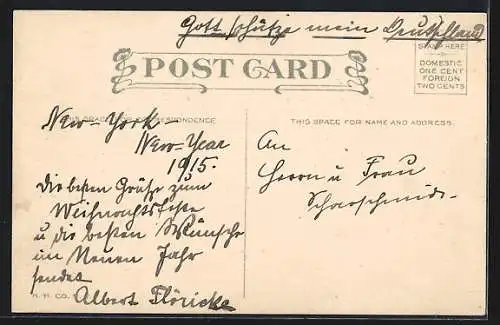 Gott schütze mein Deutschland
POST CARD
STAMP HERE
DOMESTIC
ONE CENT
FOREIGN
TWO CENTS
THIS SPACE FOR CORRESPONDENCE
THIS SPACE FOR NAME AND ADDRESS.
New-York-
New-Year
1915.
Die besten Grüße zum
Weihnachtsfeste
u die besten Wünsche
im Neuen Jahr
sendet
Albert Flöricke
H. H. CO.
An
Herrn u Frau
Scharschmidt